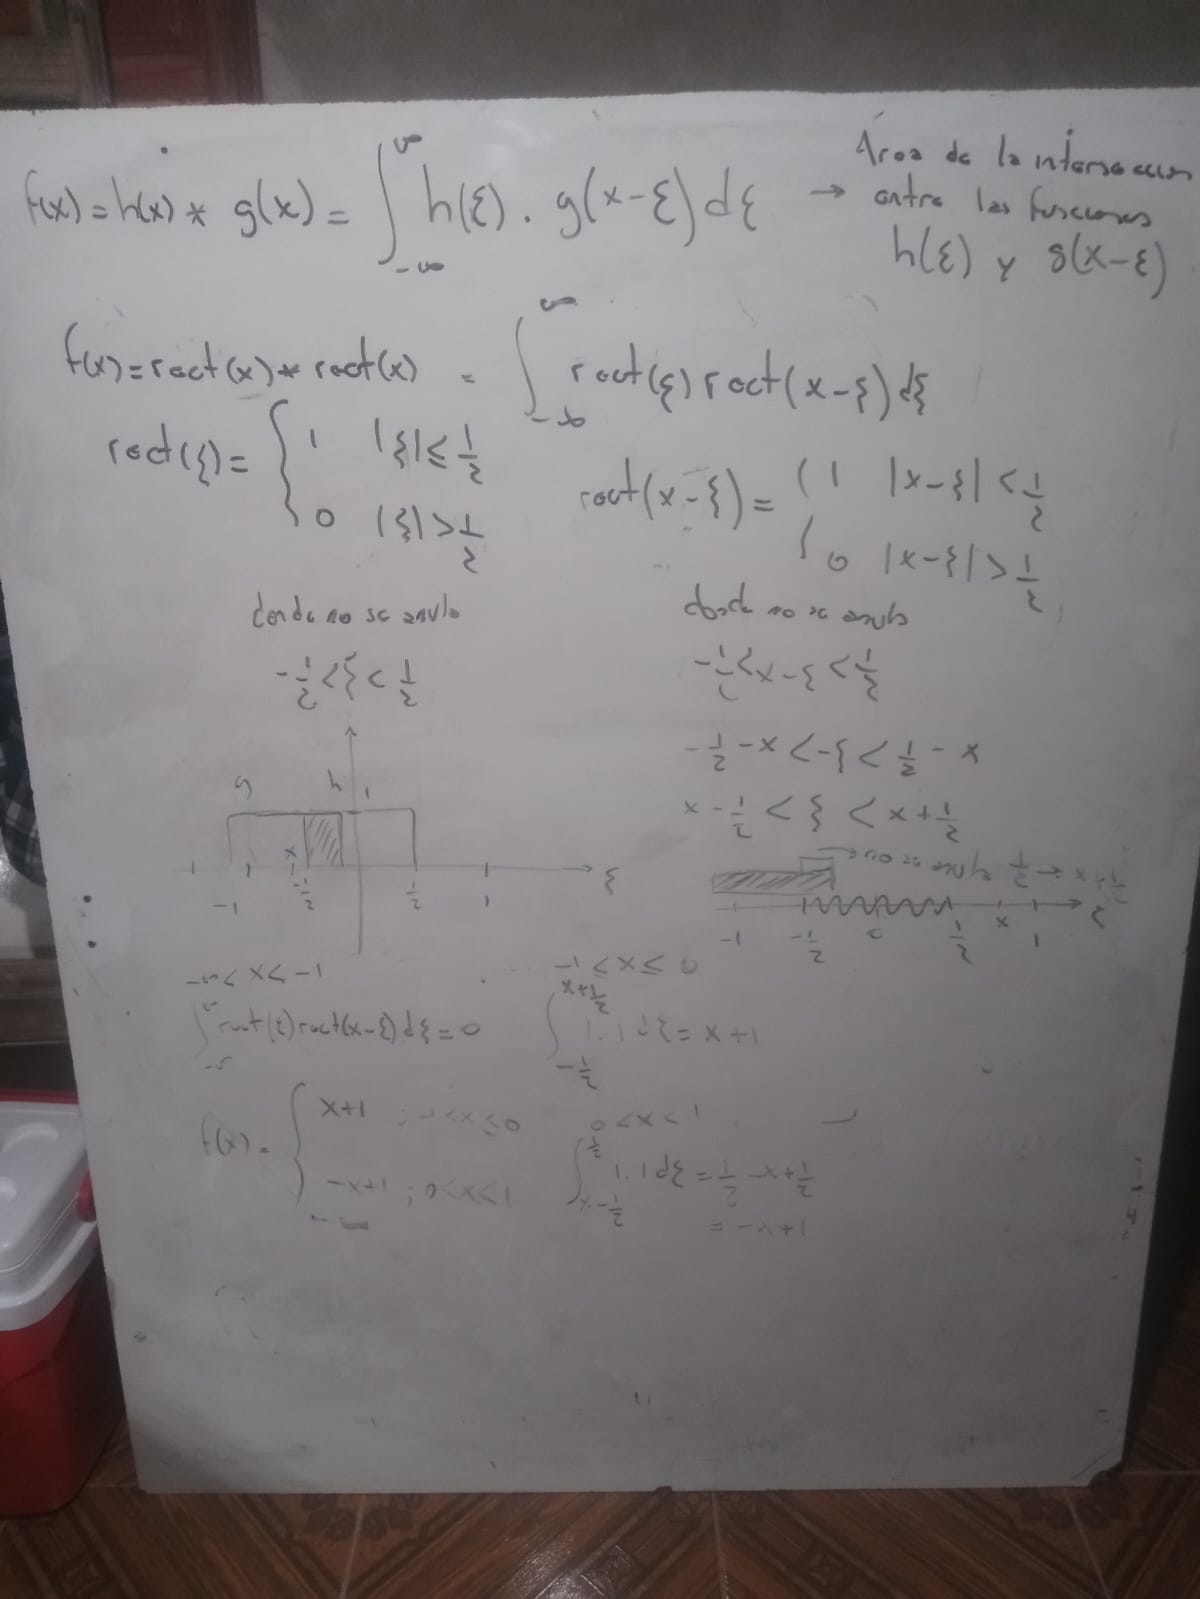 f(x) = h(x) * g(x) = ∫_{-∞}^{∞} h(ξ) · g(x-ξ) dξ → Área de la interseccion entre las funciones h(ξ) y g(x-ξ)
f(x) = rect(x) * rect(x) = ∫_{-∞}^{∞} rect(ξ) rect(x-ξ) dξ
rect(ξ) = { 1 |ξ| ≤ 1/2
0 |ξ| > 1/2
rect(x-ξ) = { 1 |x-ξ| < 1/2
0 |x-ξ| > 1/2
donde no se anula
-1/2 < ξ < 1/2
donde no se anula
-1/2 < x-ξ < 1/2
-1/2 - x < -ξ < 1/2 - x
x - 1/2 < ξ < x + 1/2
g h 1
x
-1 -1/2 1/2 1 ξ
no se anula 1/2 + x
-1 -1/2 0 1/2 x 1 ξ
-∞ < x < -1
∫ rect(ξ) rect(x-ξ) dξ = 0
-1 < x ≤ 0
∫_{-1/2}^{1/2+x} 1·1 dξ = x+1
f(x) = { x+1 ;
-x+1 ; 0<x<1
0<x<1
∫_{x-1/2}^{1/2} 1·1 dξ = 1/2 - x + 1/2
= -x+1